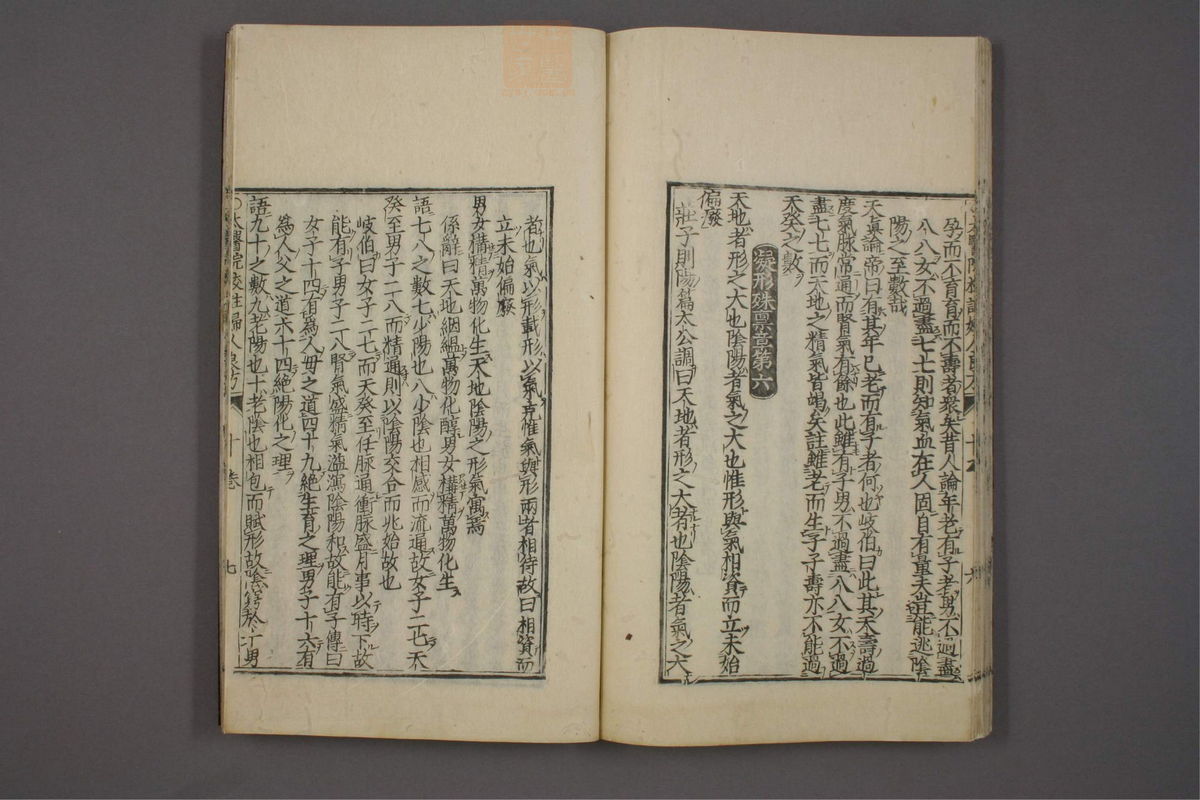 孕而不育育而不壽者衆矣昔人論年老有子者男不過盡
八八女不過盡七七則知氣血在人固自有量夫豈能逃陰
陽之至數哉
天眞論帝曰有其年已老而有子者何也岐伯曰此其天壽過
度氣脉常通而腎氣有餘也此雖有子男不過盡八八女不過
盡七七而天地之精氣皆竭矣註雖老而生子子壽亦不能過
天癸之數
凝形殊禀章第六
天地者形之大也陰陽者氣之大也惟形與氣相資而立未始
偏廢
莊子則陽篇太公調曰天地者形之大者也陰陽者氣之大
者也氣以形載形以氣充惟氣與形兩者相待故曰相資而
立未始偏廢
男女構精萬物化生天地陰陽之形氣寓焉
係辭曰天地絪縕萬物化醇男女構精萬物化生
語七八之數七少陽也八少陰也相感而流通故女子二七天
癸至男子二八而精通則以陰陽交合而兆始故也
岐伯曰女子二七而天癸至任脉通衝脉盛月事以時下故
能有子男子二八腎氣盛精氣溢瀉陰陽和故能有子傳曰
女子十四有爲人母之道四十九絶生育之理男子十六有
爲人父之道六十四絶陽化之理
語九十之數九老陽也十老陰也相包而賦形故陰窮於丁男
○太醫院校註婦人良方
十卷
七